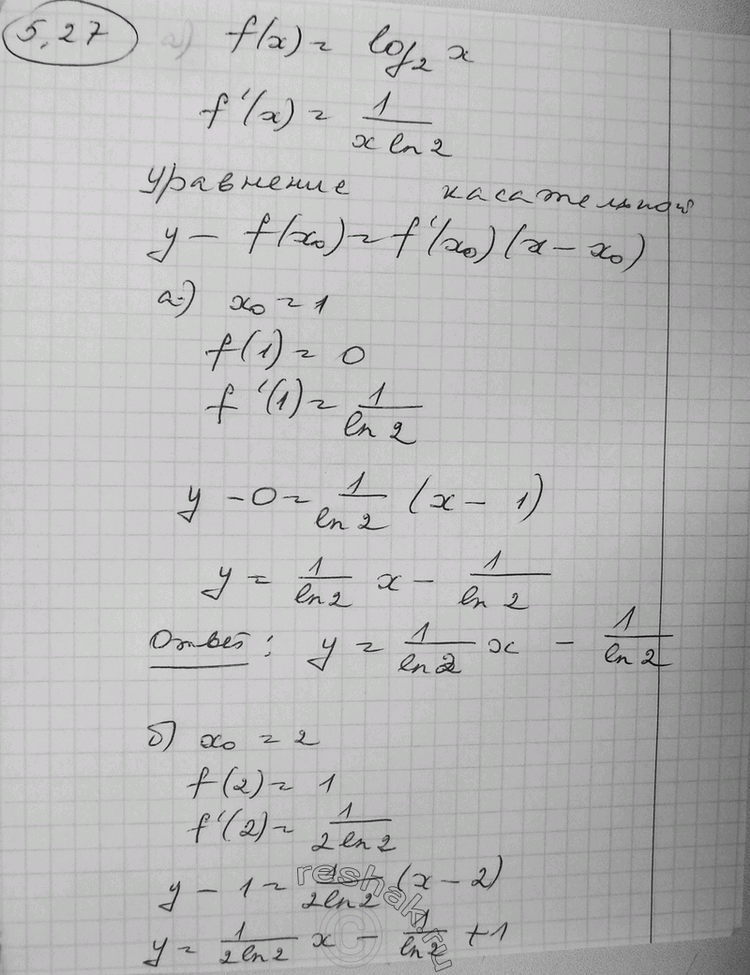 5.27 а) f(x) = log₂ x
f'(x) = 1/(x ln 2)
Уравнение касательной
y - f(x₀) = f'(x₀)(x - x₀)
а) x₀ = 1
f(1) = 0
f'(1) = 1/(ln 2)
y - 0 = 1/(ln 2) (x - 1)
y = 1/(ln 2) x - 1/(ln 2)
Ответ: y = 1/(ln 2) x - 1/(ln 2)
б) x₀ = 2
f(2) = 1
f'(2) = 1/(2 ln 2)
y - 1 = 1/(2 ln 2) (x - 2)
y = 1/(2 ln 2) x - 1/(ln 2) + 1
reshak.ru
©